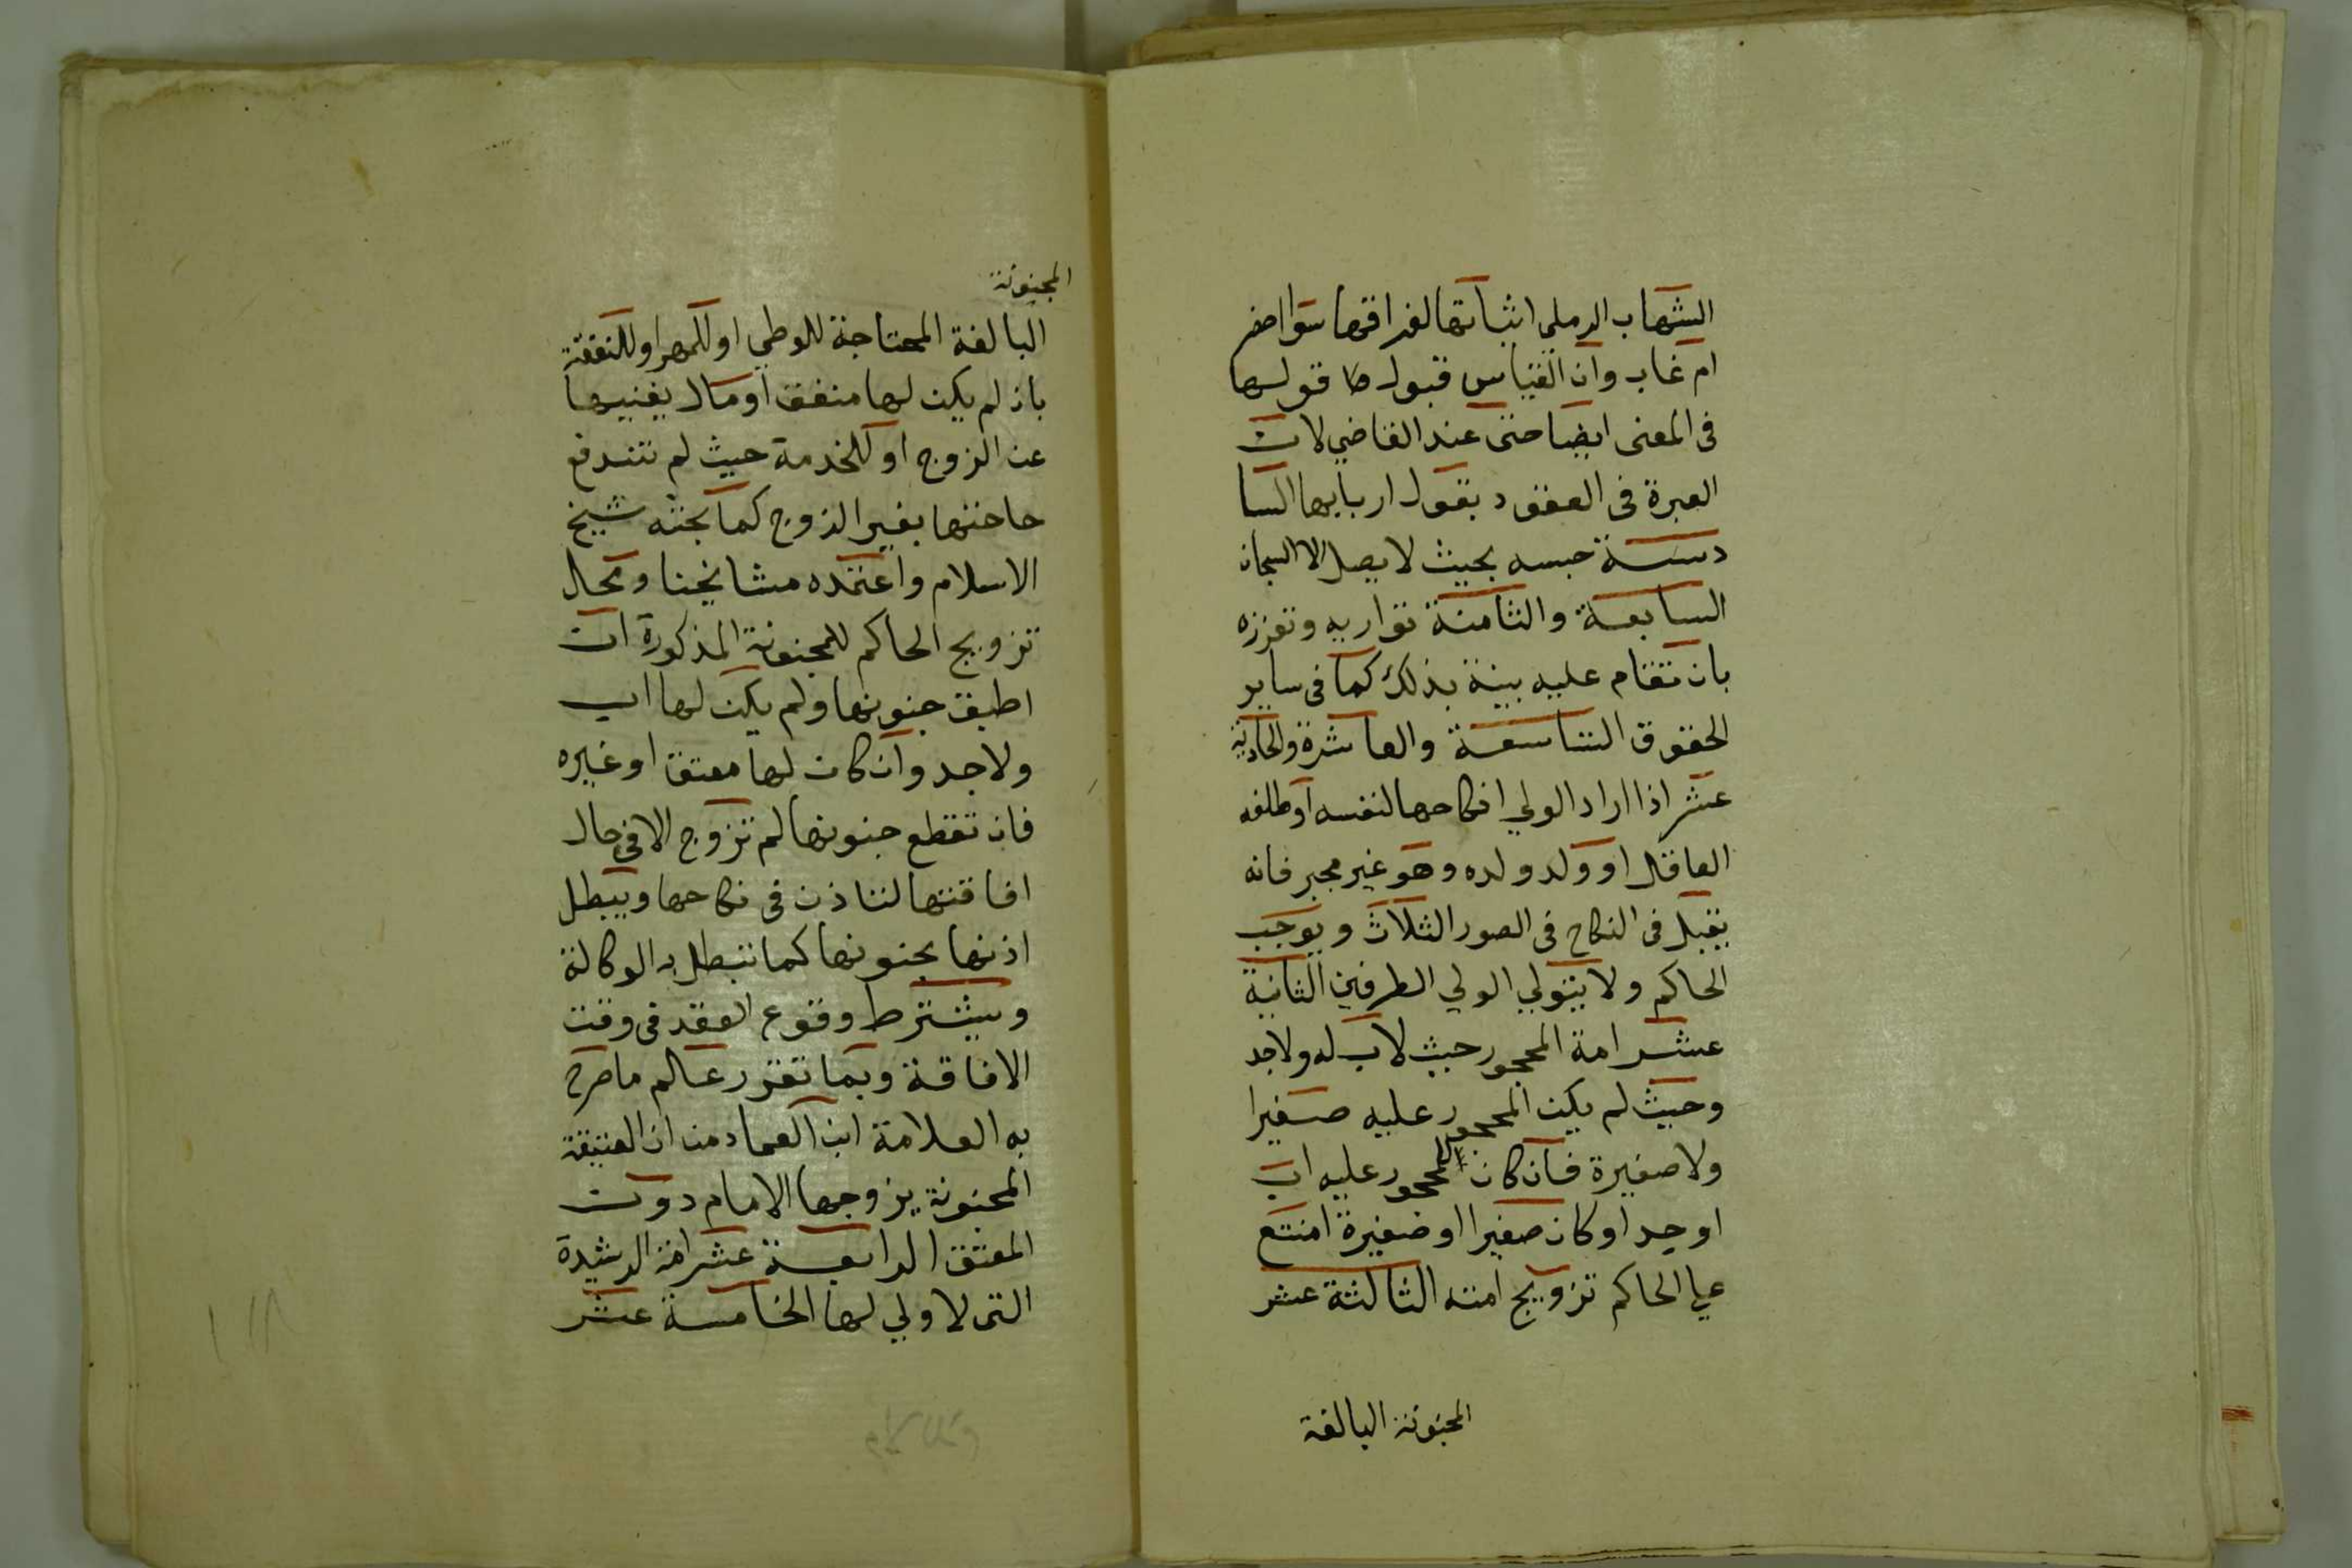 الشهاب الرملي اثباتها لفراقها سوا حضر
ام غاب وان القياس قبول قولها
فى المعنى ايضا حتى عند القاضي لان
العبرة فى العقود بقول اربابها السا
دسة حبسه بحيث لا يصل الا السجان
السابعة والثامنة تواريه وتعززه
بان تقام عليه بينة بذلك كما فى ساير
الحقوق التاسعة والعاشرة والحادية
عشر اذا اراد الولي انكاحها لنفسه او طلفه
العاقل او ولد ولده وهو غير مجبر فانه
يقبل فى النكاح فى الصور الثلاث ويوجب
الحاكم ولا يتولي الولي الطرفين الثانية
عشر امة المحجور حيث لا اب له ولا جد
وحيث لم يكن المحجور عليه صغيرا
ولا صغيرة فان كان للمحجور عليه اب
او جد او كان صغيرا او صغيرة امتنع
علي الحاكم تزويج امته الثالثة عشر
المجنونة البالغة
المجنونة
البالغة المحتاجة للوطي او للمهر او للنفقة
بان لم يكن لها منفق او مال يغنيها
عن الزوج او للخدمة حيث لم تندفع
حاجتها بغير الزوج كما بحثه شيخ
الاسلام واعتمده مشايخنا ومحال
تزويج الحاكم للمجنونة المذكورة ان
اطبق جنونها ولم يكن لها اب
ولا جد وان كان لها معتق او غيره
فان تقطع جنونها لم تزوج الا فى حال
افاقتها لتاذن فى نكاحها ويبطل
اذنها بجنونها كما تبطل به الوكالة
ويشترط وقوع العقد فى وقت
الافاقة وبما تقرر عالم ما صرح
به العلامة ابن العماد من ان العتيقة
المجنونة يزوجها الامام دون
المعتق الرابعة عشر امة الرشيدة
التى لا ولي لها الخامسة عشر